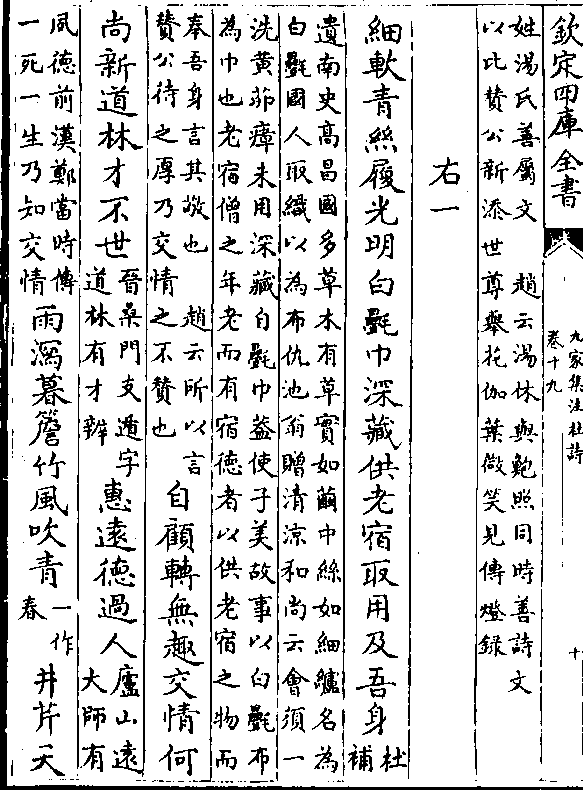 欽定四庫全書
九家集注杜詩
卷十九
十
姓湯氏善屬文　趙云湯休與鮑照同時善詩文
以比賛公新添世尊舉花伽葉微笑見傳燈錄
右一
細軟青絲履光明白氎巾深藏供老宿取用及吾身
杜補
遺南史髙昌國多草木有草實如繭中絲如細纑名為
白氎國人取織以為布仇池翁贈清涼和尚云會須一
洗黃茆瘴未用深藏白氎巾葢使子美故事以白氎布
為巾也老宿僧之年老而有宿徳者以供老宿之物而
奉吾身言其敬也　趙云所以言
賛公待之厚乃交情之不賛也
自顧轉無趣交情何
尚新道林才不世
晉桑門支遁字
道林有才辨
惠遠德過人
廬山遠
大師有
風德前漢鄭當時傳
一死一生乃知交情
雨瀉暮簷竹風吹青
一作
春
井芹天